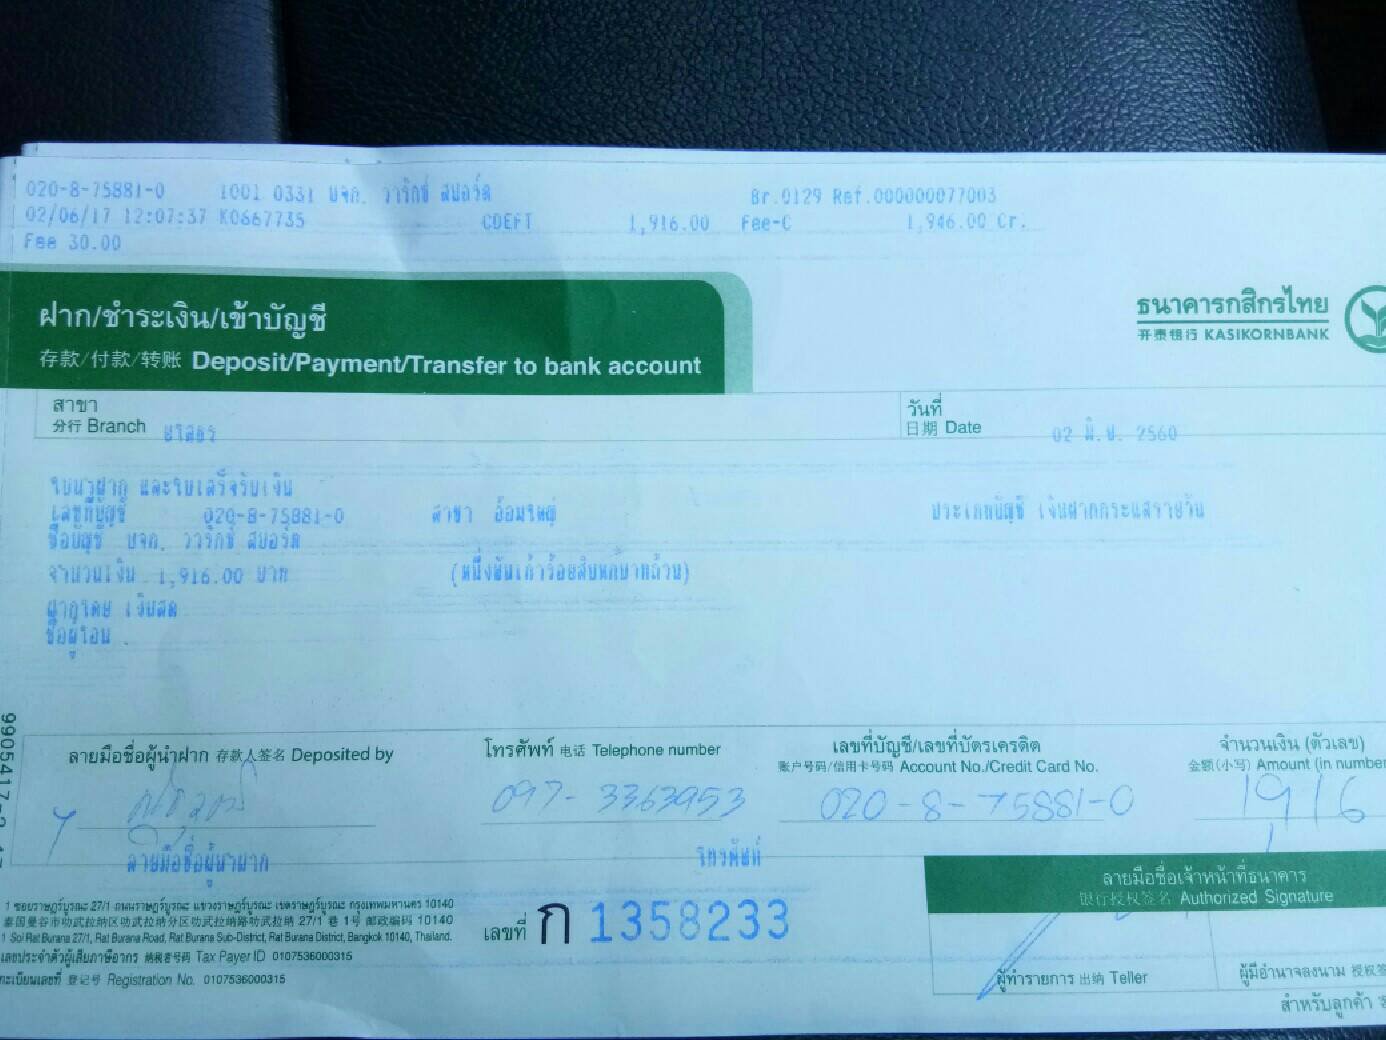 020-8-75881-0 1001 0331 บจก. วาริกซ์ สปอร์ต Br.0129 Ref.000000077003
02/06/17 12:07:37 K0667735 CDEFT 1,916.00 Fee-C 1,946.00 Cr.
Fee 30.00
ฝาก/ชำระเงิน/เข้าบัญชี
存款/付款/转账 Deposit/Payment/Transfer to bank account
ธนาคารกสิกรไทย
开泰银行 KASIKORNBANK
สาขา
分行 Branch ยโสธร
วันที่
日期 Date 02 มิ.ย. 2560
ใบนำฝาก และใบเสร็จรับเงิน
เลขที่บัญชี 020-8-75881-0 สาขา อ้อมใหญ่ ประเภทบัญชี เงินฝากกระแสรายวัน
ชื่อบัญชี บจก. วาริกซ์ สปอร์ต
จำนวนเงิน 1,916.00 บาท (หนึ่งพันเก้าร้อยสิบหกบาทถ้วน)
ฝากโดย เงินสด
ชื่อผู้โอน
ลายมือชื่อผู้นำฝาก 存款人签名 Deposited by
โทรศัพท์ 电话 Telephone number
097-3363953
เลขที่บัญชี/เลขที่บัตรเครดิต
账户号码/信用卡号码 Account No./Credit Card No.
020-8-75881-0
จำนวนเงิน (ตัวเลข)
金额(小写) Amount (in number
1,916
ลายมือชื่อผู้นำฝาก โทรศัพท์
1 ซอยราษฎร์บูรณะ 27/1 ถนนราษฎร์บูรณะ แขวงราษฎร์บูรณะ เขตราษฎร์บูรณะ กรุงเทพมหานคร 10140
泰国曼谷市叻武拉纳区叻武拉纳分区叻武拉纳路叻武拉纳 27/1 巷 1号 邮政编码 10140
1 Soi Rat Burana 27/1, Rat Burana Road, Rat Burana Sub-District, Rat Burana District, Bangkok 10140, Thailand.
เลขประจำตัวผู้เสียภาษีอากร 纳税者号码 Tax Payer ID 0107536000315
ทะเบียนเลขที่ 登记号 Registration No. 0107536000315
เลขที่ ก 1358233
ลายมือชื่อเจ้าหน้าที่ธนาคาร
银行授权签名 Authorized Signature
ผู้ทำรายการ 出纳 Teller
ผู้มีอำนาจลงนาม 授权签
สำหรับลูกค้า